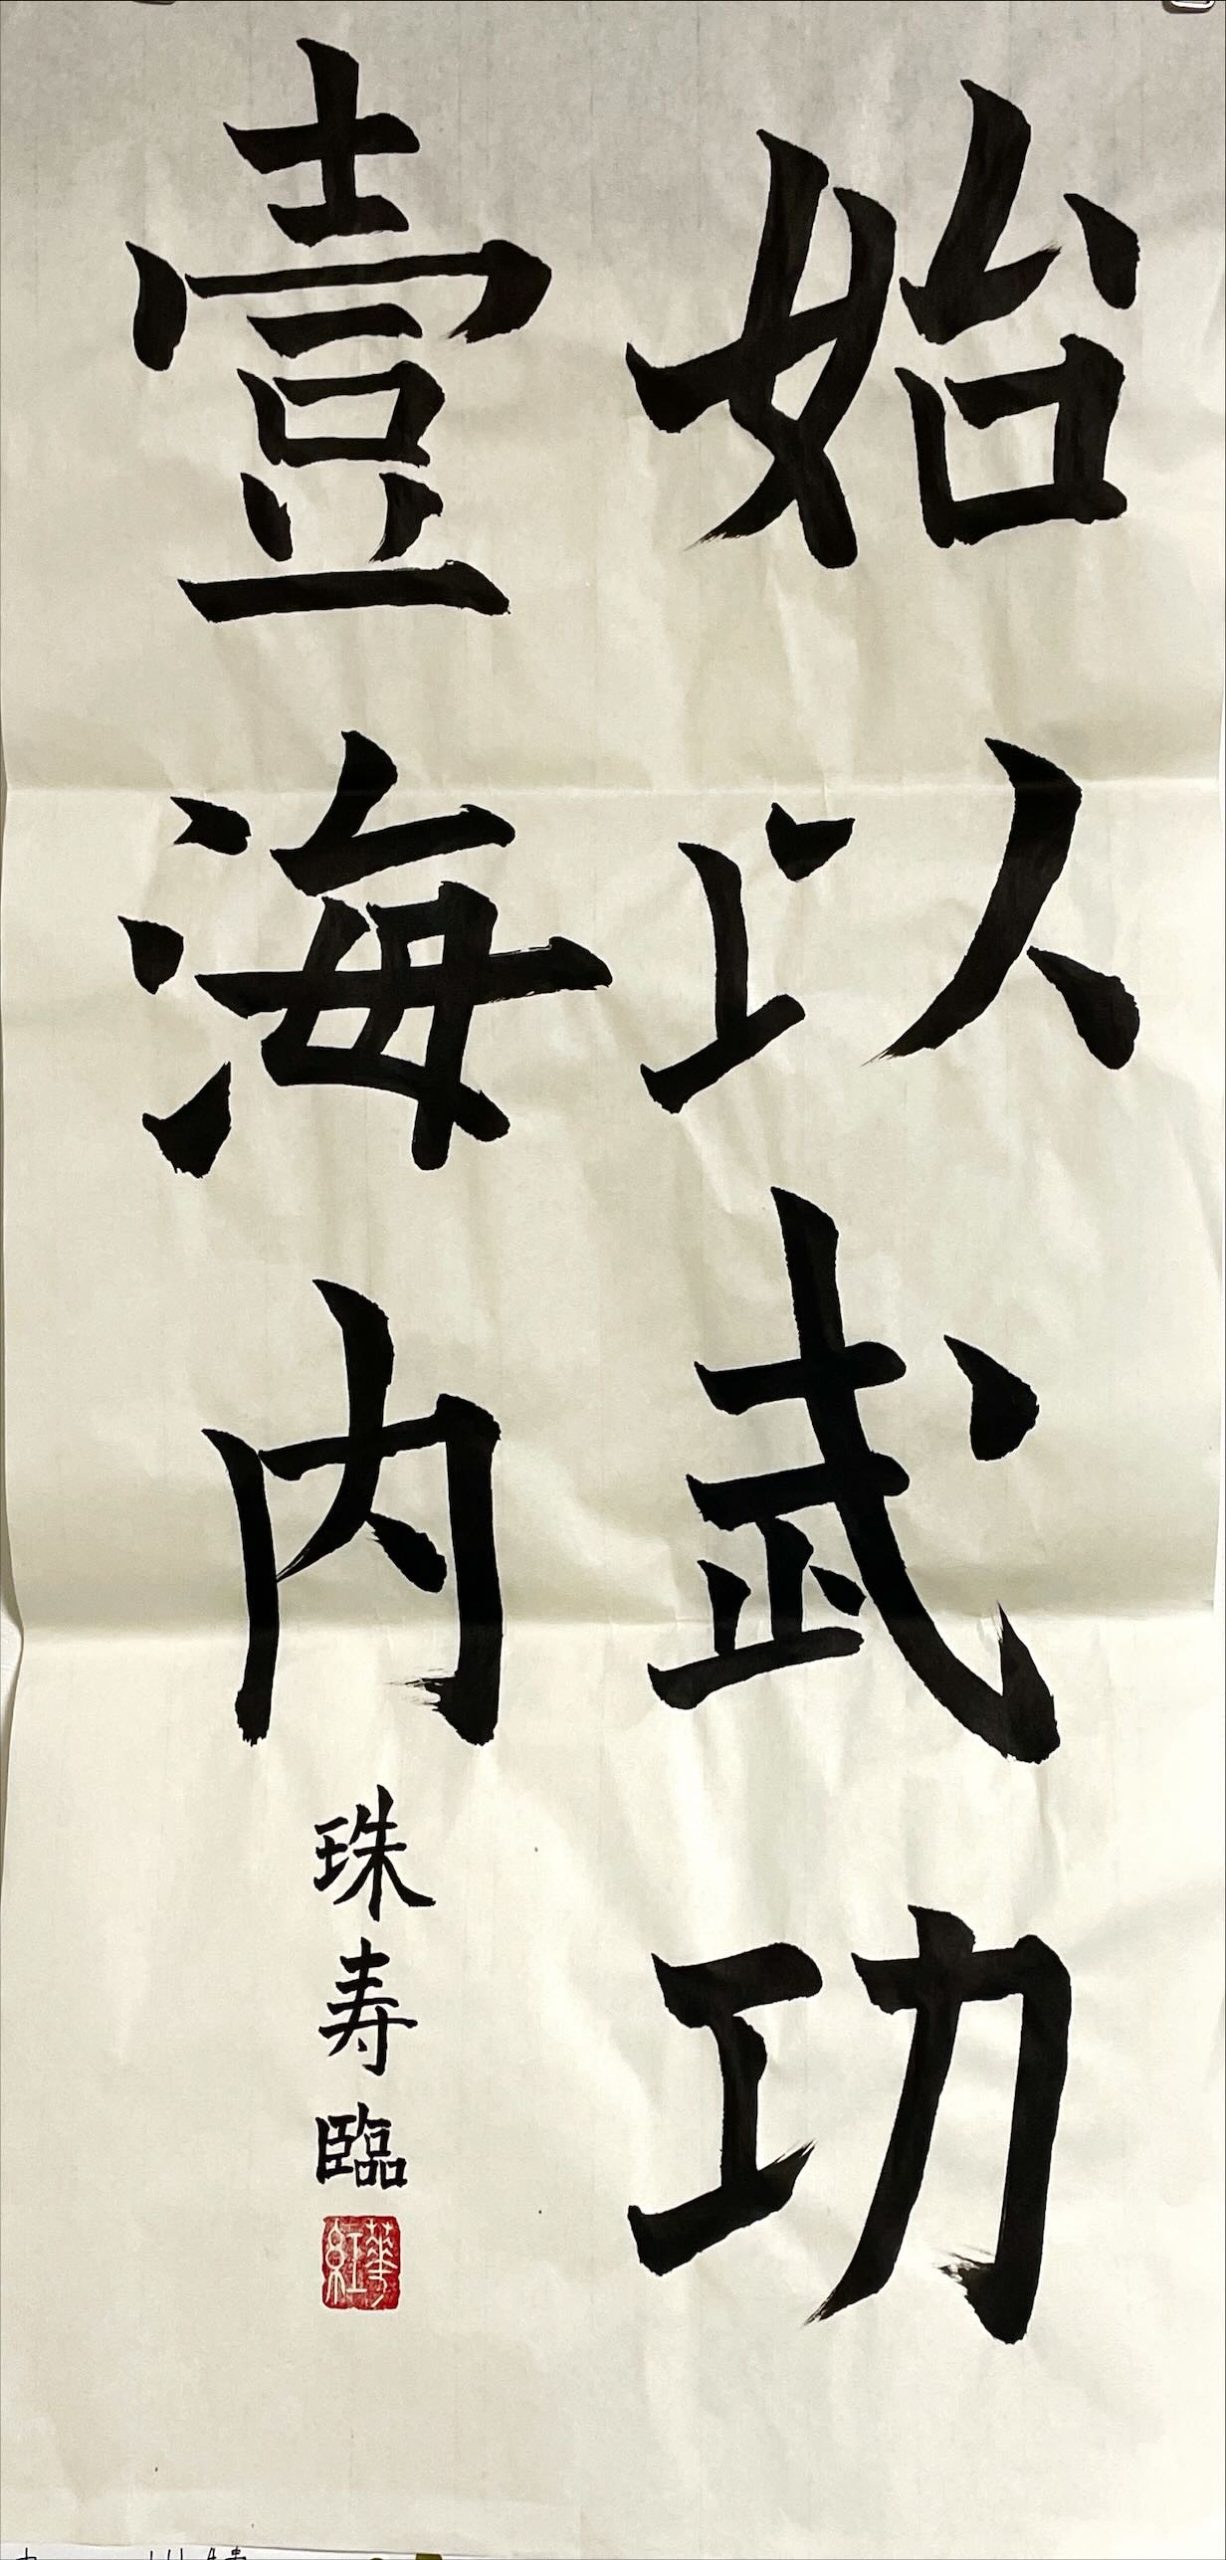 始以武功
壹海内
珠寿臨
華紅